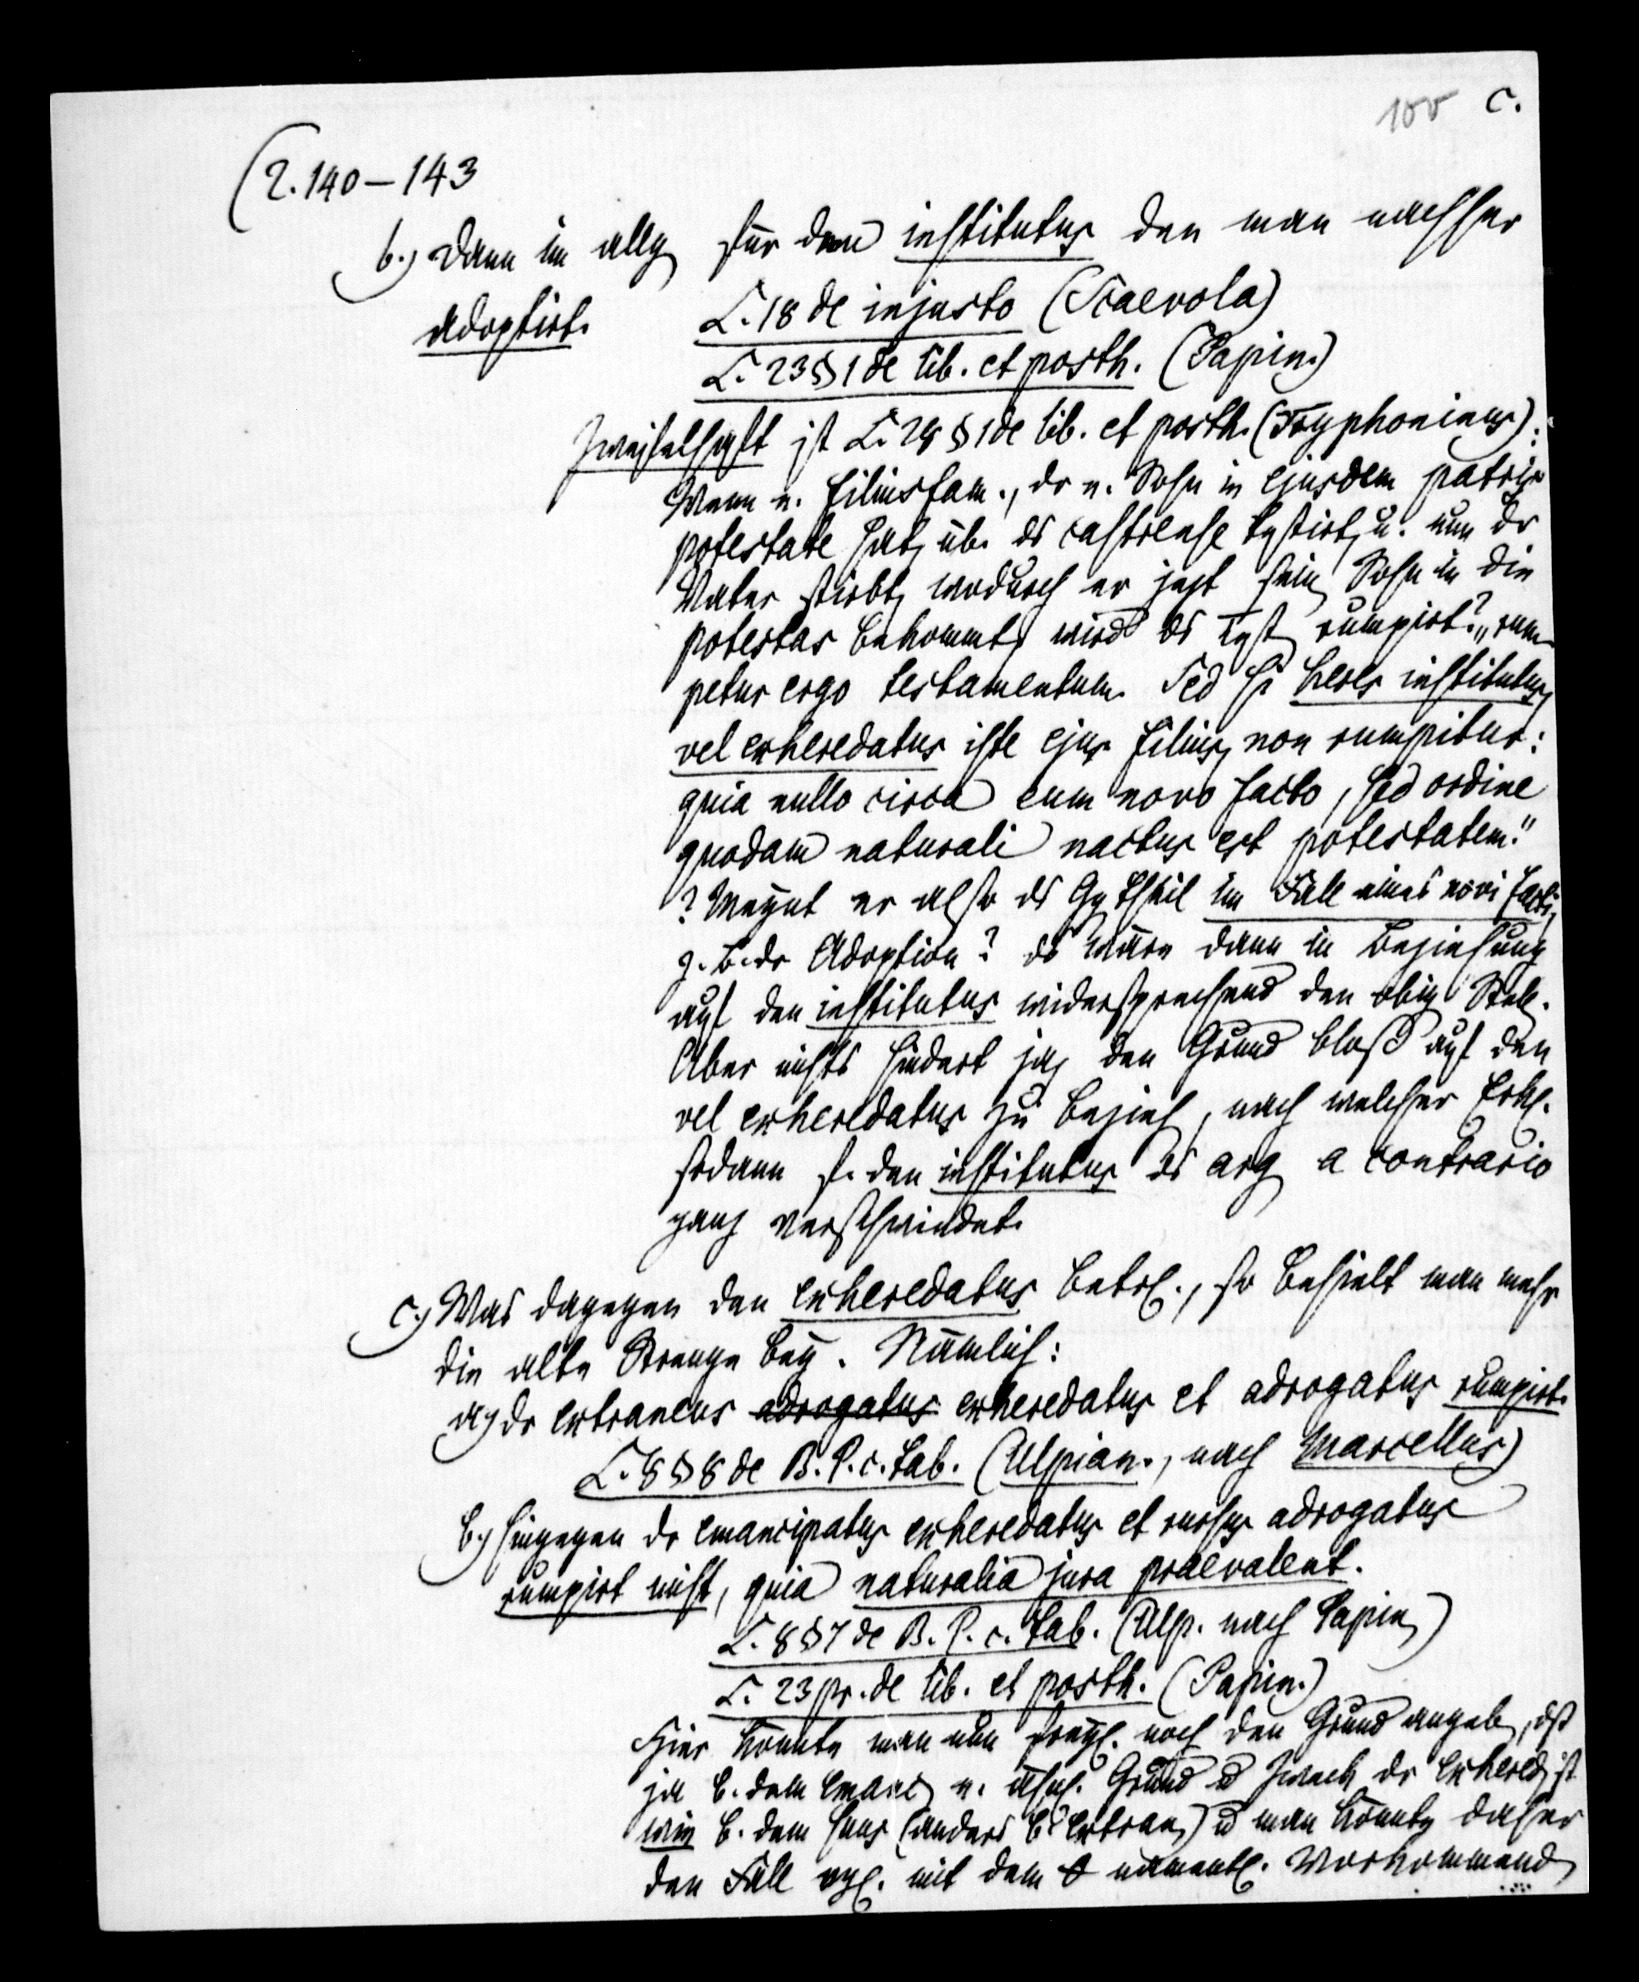 100 C.
(2. 140–143
b.) Dann im allg für den institutus den man nachher
adoptirt. L. 18 de injusto (Scaevola)
L. 23 § 1 de lib. et posth. (Papin.)
Zweifelhaft ist L. 28 § 1 de lib. et posth. (Tryphoninus):
Wenn e. filiusfam., der e. Sohn in ejusdem patris
potestate hat, üb. das castrense testirt, u. nun der
Vater stirbt, wodurch er jetzt sein Sohn in die
potestas bekommt, wird das Test rumpirt? „rum-
petur ergo testamentum. Sed si heres institutus
vel exheredatus iste ejus filius, non rumpitur:
quia nullo circa eum novo facto, sed ordine
quodam naturali nactus est potestatem."
? Meynt er also das Ggtheil im Falle eines novi facti,
z. B. der Adoption? das wäre dann in Beziehung
auf den institutus widersprechend den obig Stell.
Aber nichts hindert ja, den Grund bloß auf den
vel exheredatus zu bezieh, nach welcher Erkl.
sodann f. den institutus das arg a contrario
ganz verschwindet.
c.) Was dagegen den exheredatus betrf., so behielt man mehr
die alte Strenge bey. Nämlich:
a) der extraneus adrogatus exheredatus et adrogatus rumpirt.
L. 8 § 8 de B. P. c. tab. (Ulpian., nach Marcellus)
b) hingegen der emancipatus exheredatus et rursus adrogatus
rumpirt nicht, quia naturalia jura praevalent.
L. 8 § 7 de B. P. c. tab. (Ulp. nach Papin)
L. 23 pr. de lib. et posth. (Papin.)
Hier könnte man nun noch den Grund angeb, dß
ja b. dem emanc e. ähnl. Grund u Zweck der exhered ist
wie b. dem suus (anders b extran) u man könnte daher
den Fall vgl. mit dem namentl. vorkommend